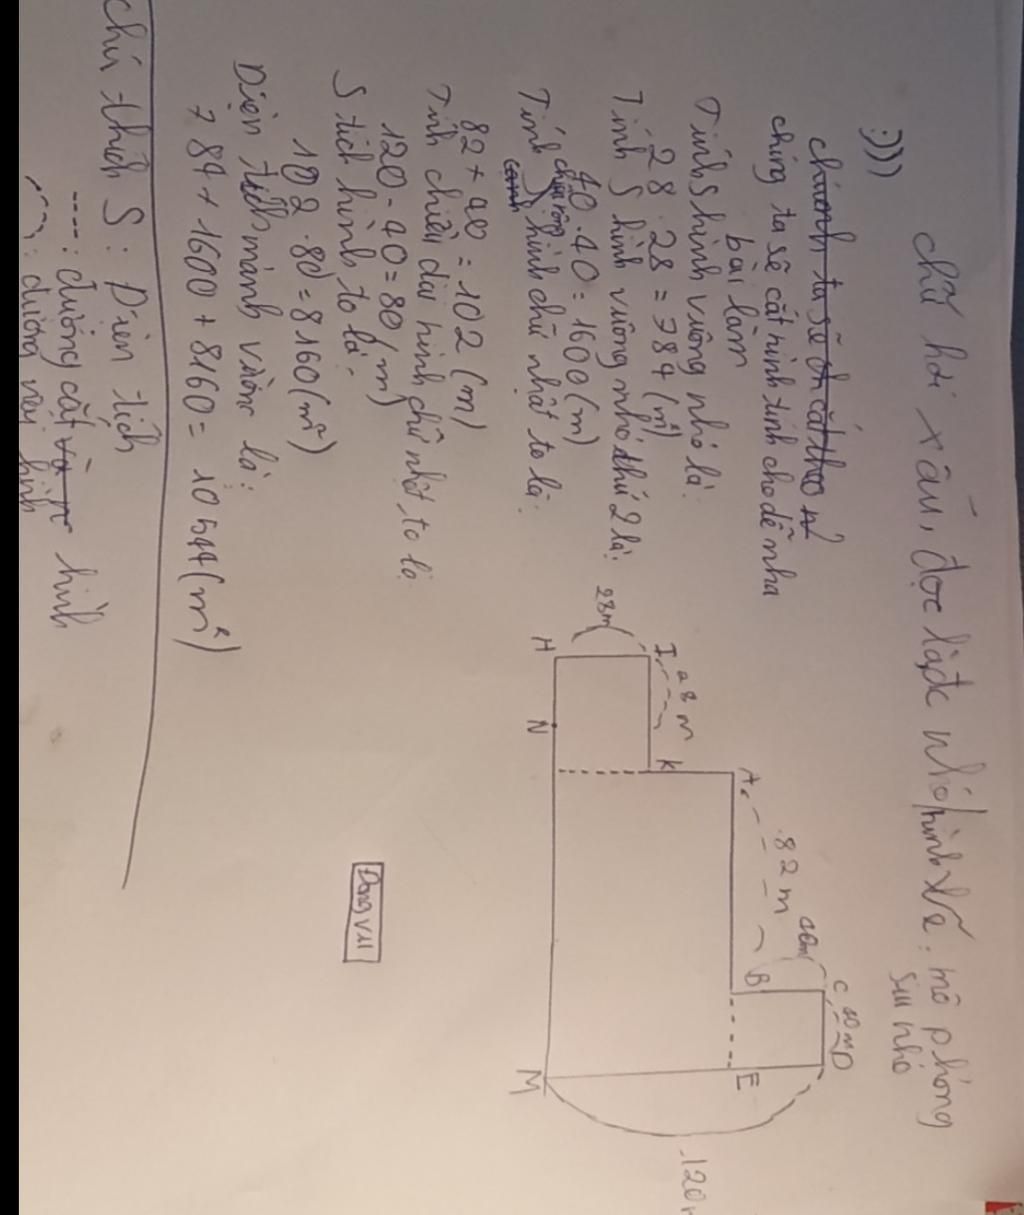 chữ hơi xấu, đọc là đc nhé hình vẽ: mô phỏng
siu nhỏ
:)))
chúng ta sẽ cắt hình tính cho dễ nha
bài làm
Tính S hình vuông nhỏ là:
28 . 28 = 784 (m²)
Tính S hình vuông nhỏ thứ 2 là:
40 . 40 = 1600 (m)
Tính chiều rộng hình chữ nhật to là:
82 + 40 = 102 (m)
Tính chiều dài hình chữ nhật to là
120 - 40 = 80 (m)
S tích hình to là:
102 . 80 = 8160 (m²)
Diện tích mảnh vườn là:
784 + 1600 + 8160 = 10544 (m²)
chú thích S: Diện tích
----: đường cắt hình
28m
I
28m
H
N
K
A
82m
40m
B
C
40m
D
E
M
120